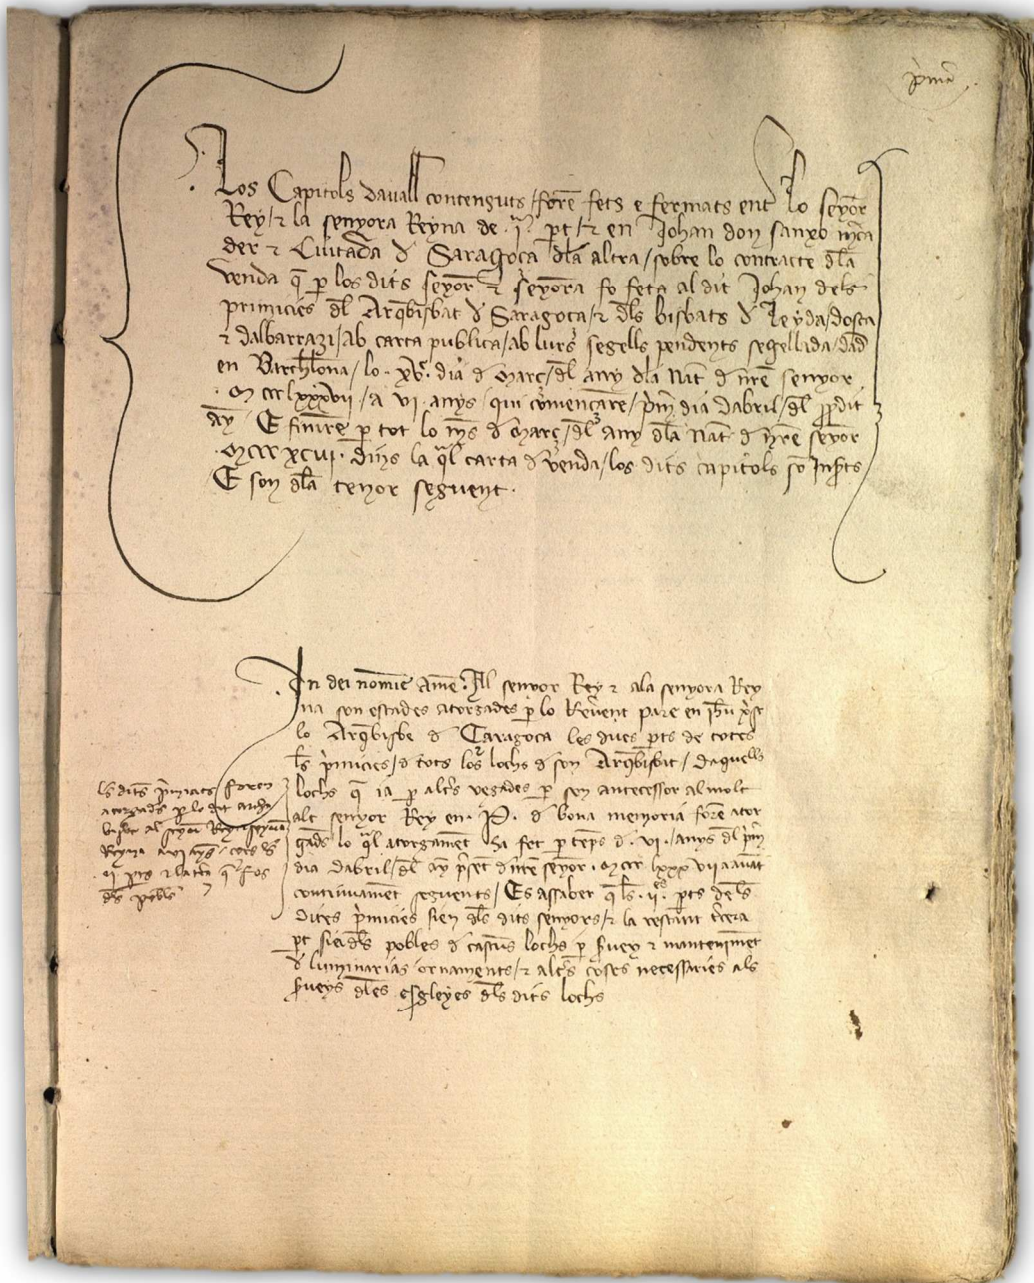 Los Capitols davall contenguts / foren fets e fermats entre lo senyor
Rey / et la senyora Reyna de .Iª. part / et en Johan don sanxo merca
der et Ciutada de Saragoça dela altra / sobre lo contracte dela
venda que per los dits senyor et senyora fo feta al dit Johan dels
primicies del Arqbisbat de Saragoça / et dels bisbats de Leyda / dosca
et dalbarrazi / ab carta publica / ab lurs segells pendents segellada / dada
en Barchlona / lo . xv. dia de Març / del any dela Nat de nre senyor
. M ccc lxxxvii / a vi . anys / qui començaren / primer dia dabril / del prop dit
any E finiren per tot lo mes de Març / del any dela Nat de nre senyor
. Mccc xciii. dins la qual carta de venda / los dits capitols son inserts /
E son dela tenor seguent .
In dei nomine Amen . Al senyor Rey et ala senyora Rey
na son estades atorgades per lo Reverent pare en jhu xpst
lo Arqbisbe de Çaragoça les dues parts de totes
les primicies / de tots los lochs de son Arqbisbat / daquells
lochs que ia per altres vegades per son antecessor al molt
alt senyor Rey en . P. de bona memoria foren ator
gades lo qual atorgament ha fet per temps de . vi . anys del primer
dia dabril / del any present de nre senyor . M ccc lxxx vii aavant
continuament seguents / Es assaber que les . ii. parts deles
dites primicies sien dels dits senyors / et la restant terça
part sia dels pobles de cascuns lochs per servey et manteniment
de luminarias ornaments / et altres coses necessaries als
serveys deles esgleyes dels dits lochs
les dits primiciats foren
atorgades per lo dit arche
bisbe al senyor Rey senyora
Reyna a vi anys totes les
. ii parts
dels pobles